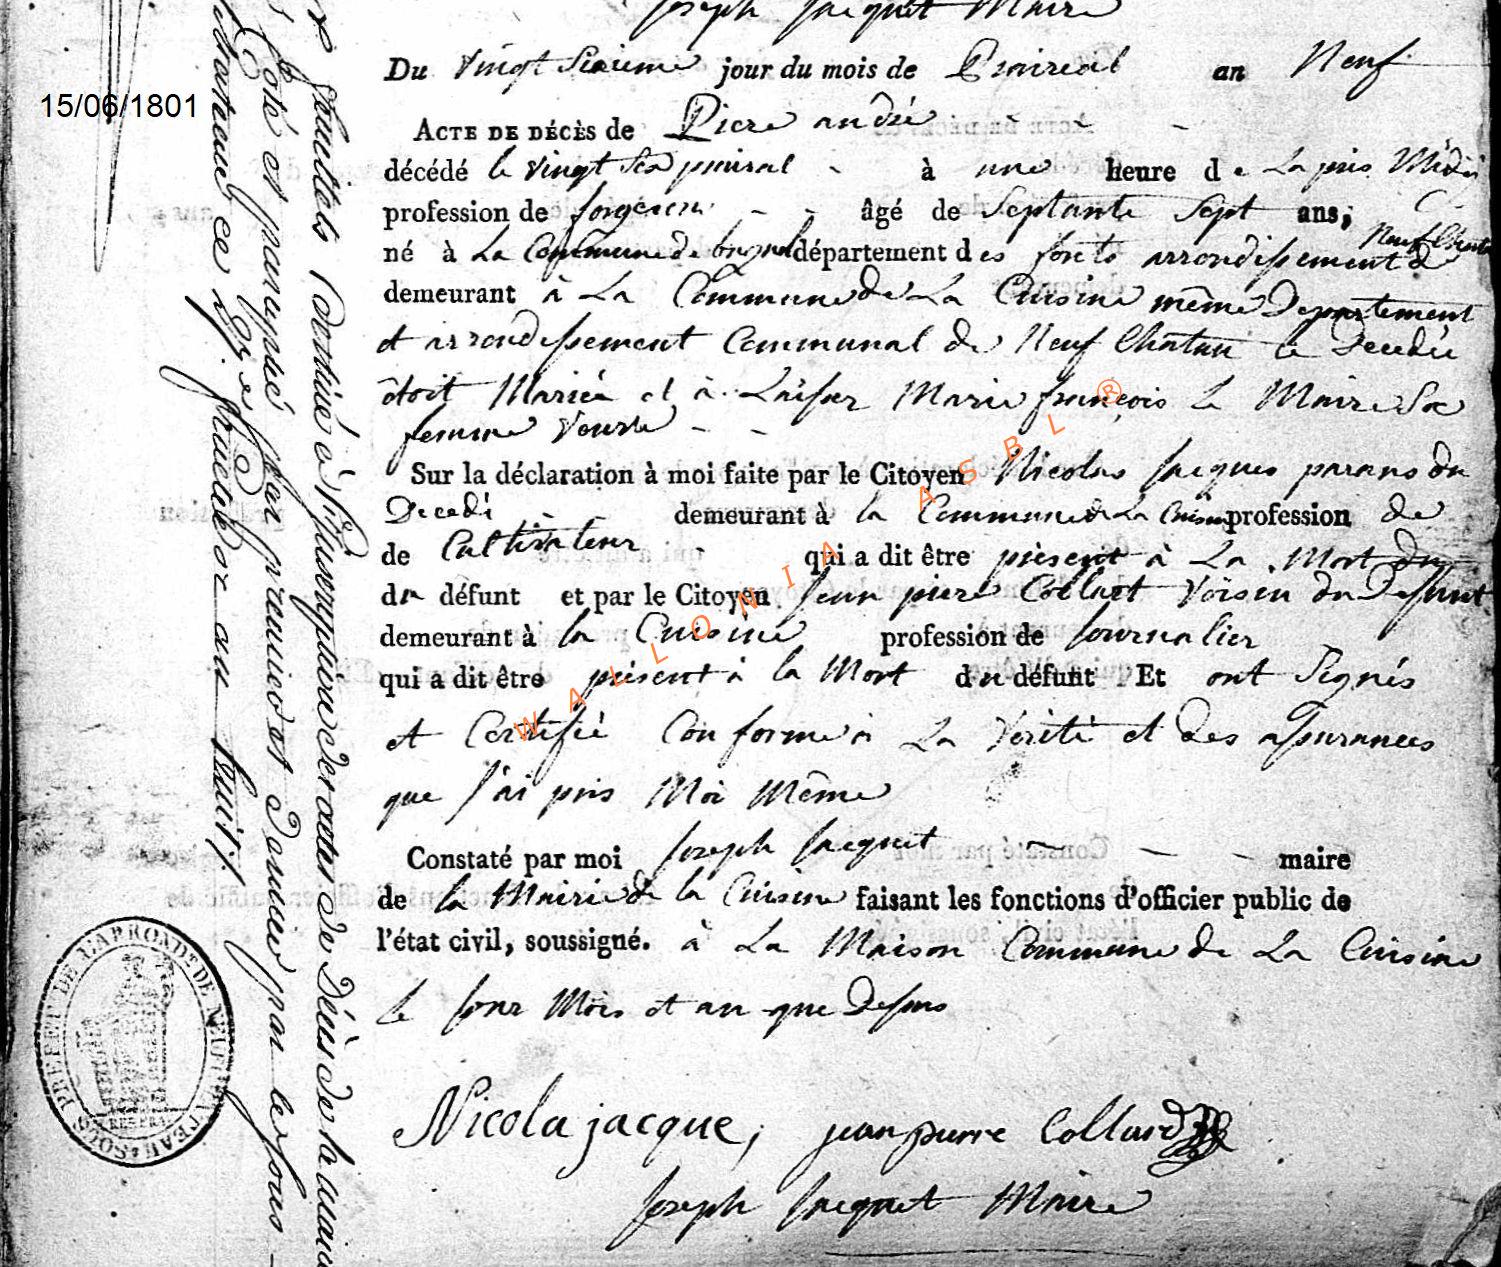 Joseph Jacquet Maire
15/06/1801
Du vingt Sixieme jour du mois de Praireal an Neuf
ACTE DE DÉCÈS de Piere andré
décédé le vingt Six prairal à une heure de La pres Midi
profession de forgeron âgé de Septante Sept ans,
né à La Commune de département des forets arrondissement de Neufchateau
demeurant à La Commune de La Cuisine même Departement
et arrondissement Communal de Neufchateau le Decedée
étoit Mariée et à Laissez Marie françois Le Maire Sa
femme veuve
Sur la déclaration à moi faite par le Citoyen Nicolas Jacques parans du
Decedé demeurant à la Commune de La Cuisine profession de
de Cultivateur qui a dit être présent à La Mort du
du défunt et par le Citoyen Jean piere Collart Voisin du Defunt
demeurant à la Cuisine profession de Journalier
qui a dit être présent à la Mort du défunt Et ont Signés
et Certifié Conforme à La Vérité et des assurances
que J'ai pris Moi Même
Constaté par moi Joseph Jacquet maire
de la Mairie de la Cuisine faisant les fonctions d'officier public de
l'état civil, soussigné. à La Maison Commune de La Cuisine
le Jour Mois et an que Dessus
Nicola jacque, jean pierre Collard
Joseph Jacquet Maire
feuillets destiné à Servire de actes de Décès de la mairie
Coté et par premier et dernier par le sous
ce an huit
SOUS PREFET DE L'ARRONDT DE NEUFCHATEAU
WALLONIA ASBL ®